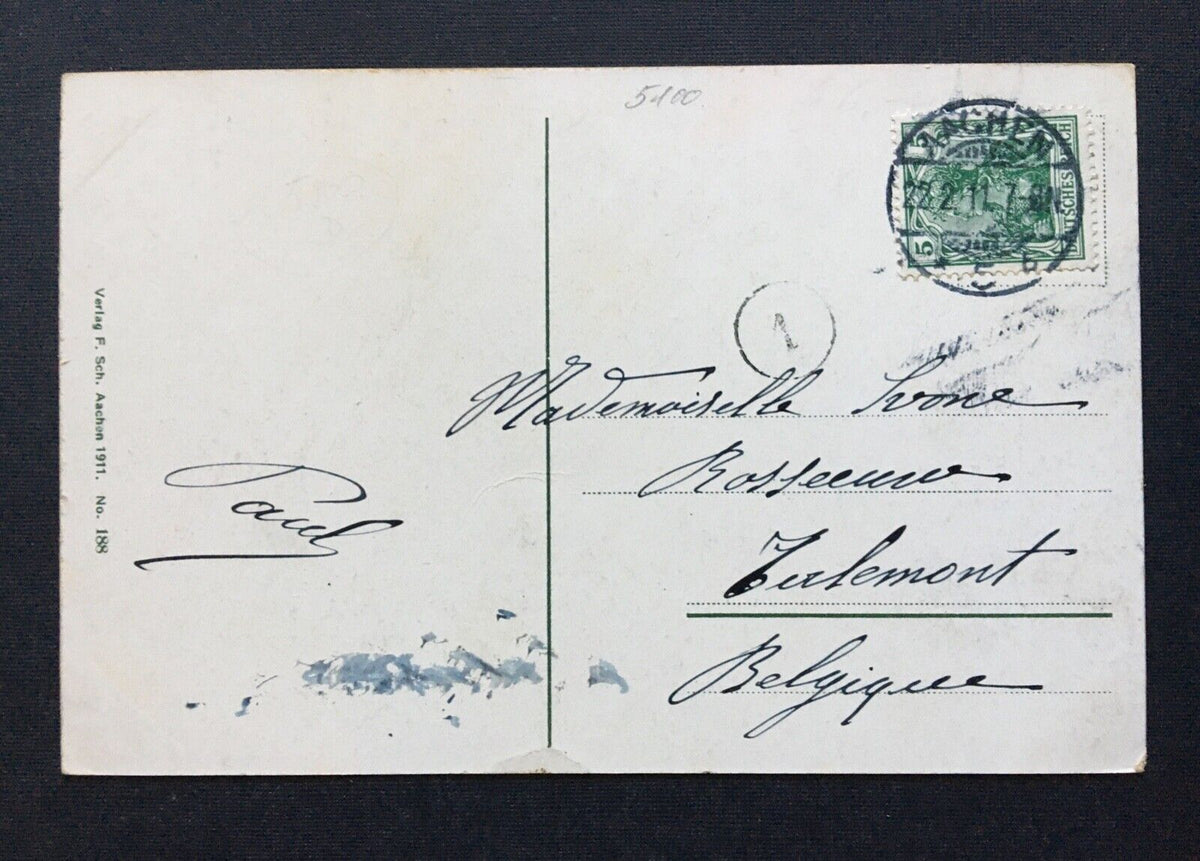 5100
AACHEN
22.2.11.7-8N.
* 5 b
5
DEUTSCHES REICH
1
Mademoiselle Ivone
Rosseeuw
Tirlemont
Belgique
Paul
Verlag F. Sch. Aachen 1911. No. 188